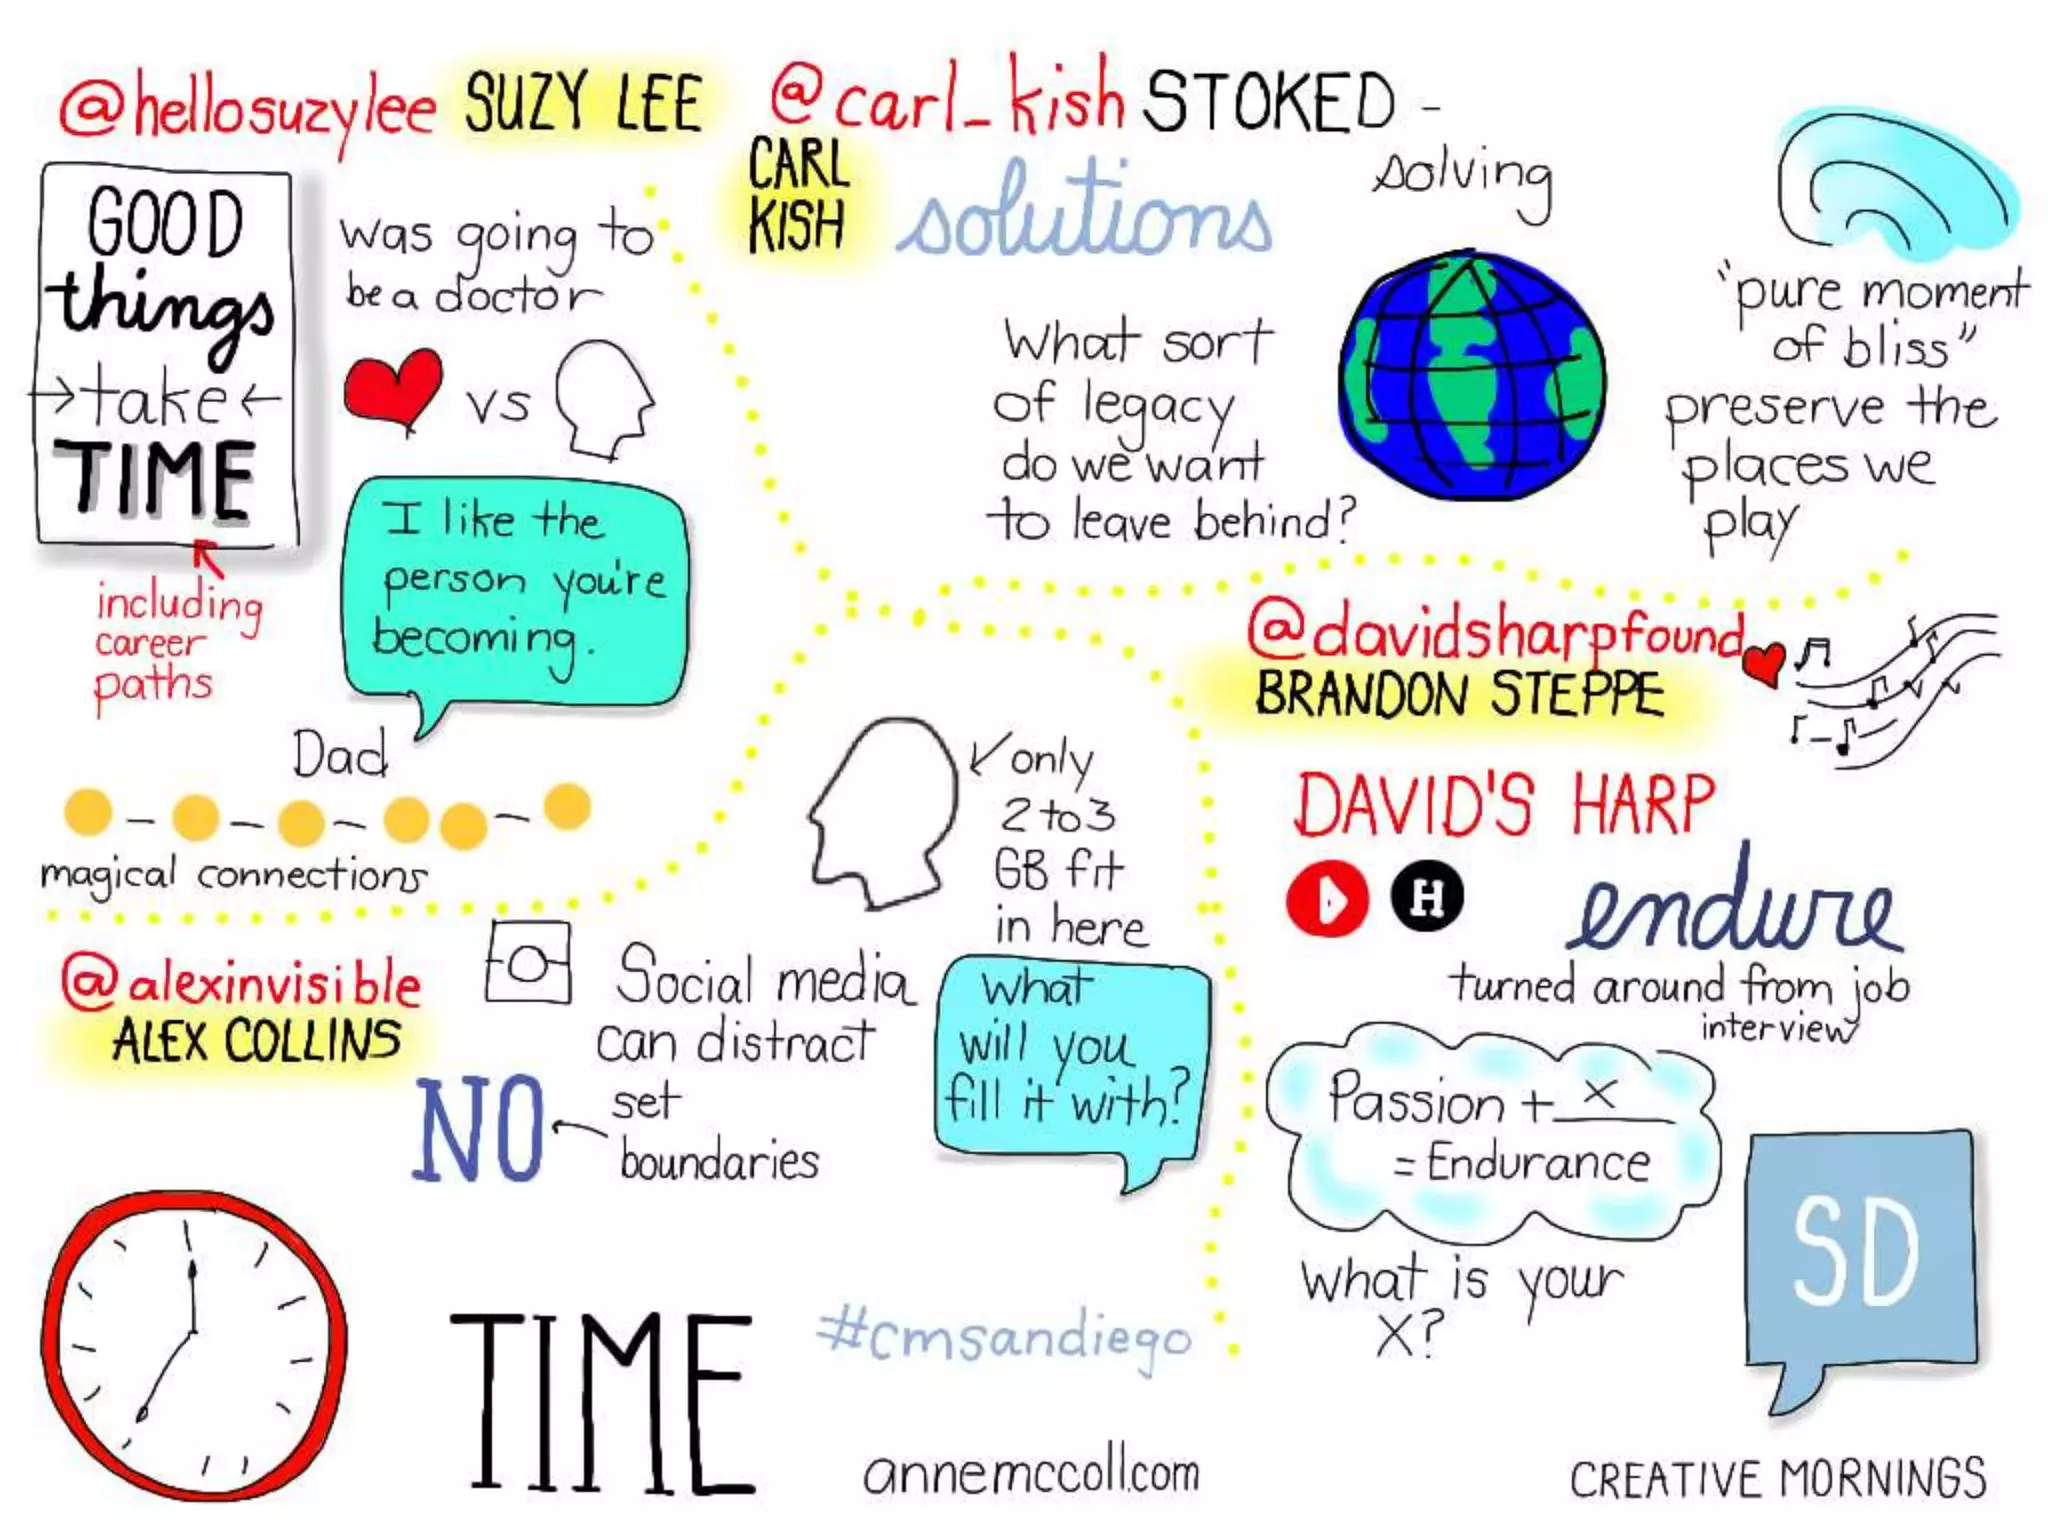 @hellosuzylee SUZY LEE
GOOD
things
→take←
TIME
including
career
paths
was going to
be a doctor
vs
I like the
person you're
becoming.
Dad
magical connections
@carl_kish STOKED -
CARL
KISH
solutions
solving
What sort
of legacy
do we want
to leave behind?
"pure moment
of bliss"
preserve the
places we
play
@alexinvisible
ALEX COLLINS
Social media
can distract
NO
set
boundaries
only
2 to 3
GB fit
in here
What
will you
fill it with?
TIME
#cmsandiego
annemccoll.com
@davidsharpfound
BRANDON STEPPE
DAVID'S HARP
D H
endure
turned around from job
interview
Passion + X
= Endurance
What is your
X?
SD
CREATIVE MORNINGS